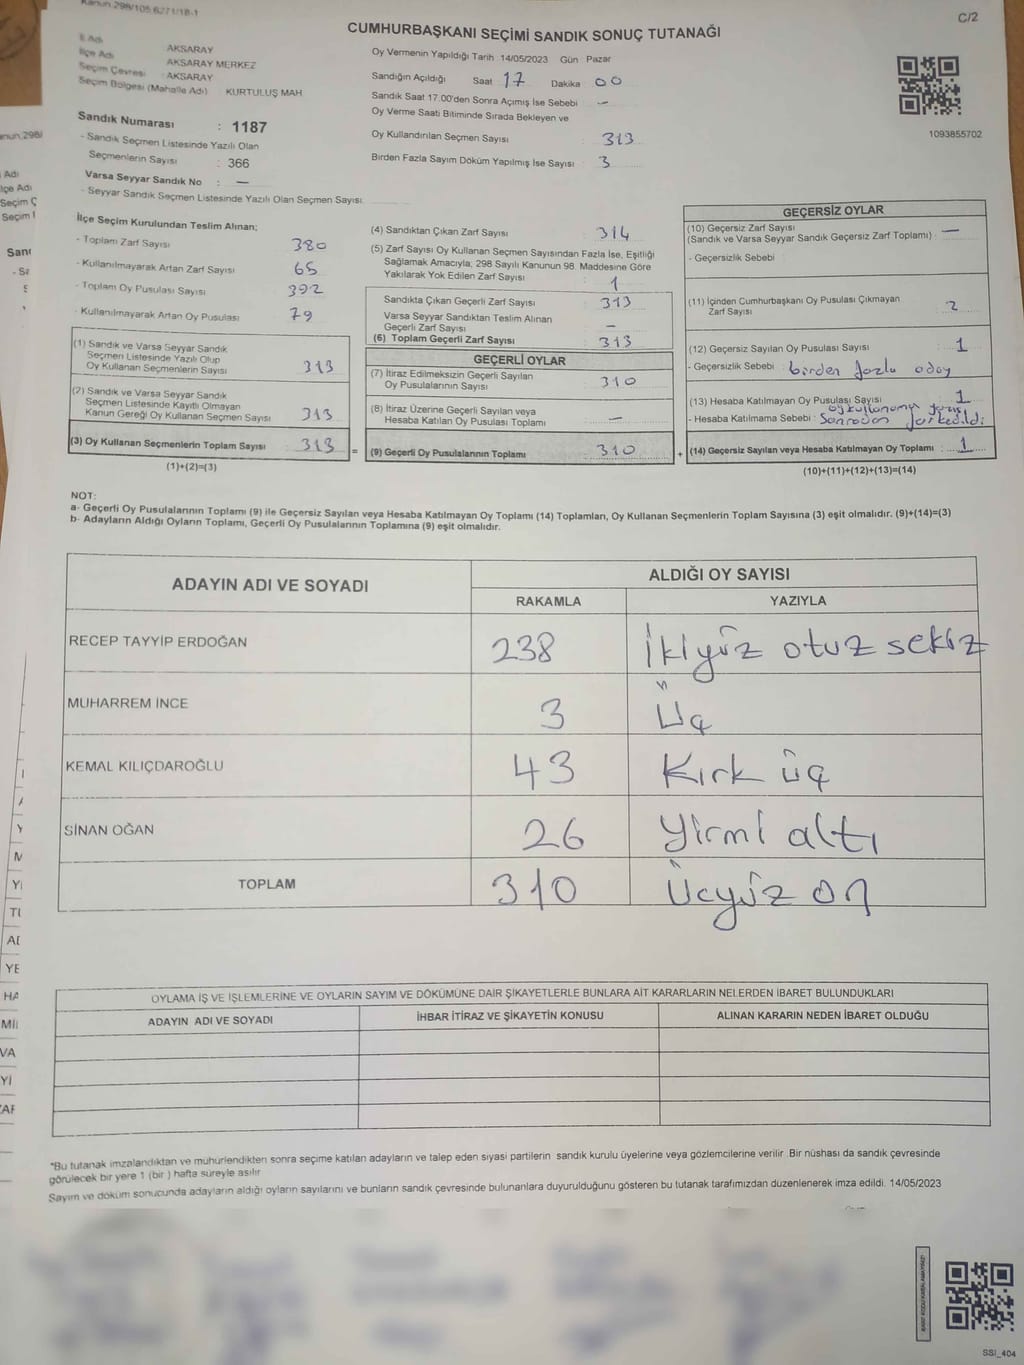 Kanun.298/105.6271/18-1
C/2
CUMHURBAŞKANI SEÇİMİ SANDIK SONUÇ TUTANAĞI
İl Adı AKSARAY
İlçe Adı AKSARAY MERKEZ
Seçim Çevresi : AKSARAY
Seçim Bölgesi (Mahalle Adı) KURTULUŞ MAH
Sandık Numarası : 1187
- Sandık Seçmen Listesinde Yazılı Olan
Seçmenlerin Sayısı : 366
Varsa Seyyar Sandık No : —
- Seyyar Sandık Seçmen Listesinde Yazılı Olan Seçmen Sayısı
Oy Vermenin Yapıldığı Tarih 14/05/2023 Gün Pazar
Sandığın Açıldığı Saat 17 Dakika 00
Sandık Saat 17.00'den Sonra Açımış İse Sebebi —
Oy Verme Saati Bitiminde Sırada Bekleyen ve
Oy Kullandırılan Seçmen Sayısı 313
Birden Fazla Sayım Döküm Yapılmış İse Sayısı 3
1093855702
İlçe Seçim Kurulundan Teslim Alınan;
- Toplam Zarf Sayısı 380
- Kullanılmayarak Artan Zarf Sayısı 65
- Toplam Oy Pusulası Sayısı 392
- Kullanılmayarak Artan Oy Pusulası 79
(1) Sandık ve Varsa Seyyar Sandık
Seçmen Listesinde Yazılı Olup
Oy Kullanan Seçmenlerin Sayısı 313
(2) Sandık ve Varsa Seyyar Sandık
Seçmen Listesinde Kayıtlı Olmayan
Kanun Gereği Oy Kullanan Seçmen Sayısı 313
(3) Oy Kullanan Seçmenlerin Toplam Sayısı 313 =
(1)+(2)=(3)
(4) Sandıktan Çıkan Zarf Sayısı 314
(5) Zarf Sayısı Oy Kullanan Seçmen Sayısından Fazla İse, Eşitliği
Sağlamak Amacıyla; 298 Sayılı Kanunun 98. Maddesine Göre
Yakılarak Yok Edilen Zarf Sayısı 1
Sandıkta Çıkan Geçerli Zarf Sayısı 313
Varsa Seyyar Sandıktan Teslim Alınan
Geçerli Zarf Sayısı —
(6) Toplam Geçerli Zarf Sayısı 313
GEÇERLİ OYLAR
(7) İtiraz Edilmeksizin Geçerli Sayılan
Oy Pusulalarının Sayısı 310
(8) İtiraz Üzerine Geçerli Sayılan veya
Hesaba Katılan Oy Pusulası Toplamı —
(9) Geçerli Oy Pusulalarının Toplamı 310 +
GEÇERSİZ OYLAR
(10) Geçersiz Zarf Sayısı
(Sandık ve Varsa Seyyar Sandık Geçersiz Zarf Toplamı) —
- Geçersizlik Sebebi
(11) İçinden Cumhurbaşkanı Oy Pusulası Çıkmayan
Zarf Sayısı 2
(12) Geçersiz Sayılan Oy Pusulası Sayısı 1
- Geçersizlik Sebebi : birden fazla aday
(13) Hesaba Katılmayan Oy Pusulası Sayısı 1
- Hesaba Katılmama Sebebi : sonradan farkedildi
(14) Geçersiz Sayılan veya Hesaba Katılmayan Oy Toplamı 1
(10)+(11)+(12)+(13)=(14)
NOT:
a- Geçerli Oy Pusulalarının Toplamı (9) ile Geçersiz Sayılan veya Hesaba Katılmayan Oy Toplamı (14) Toplamları, Oy Kullanan Seçmenlerin Toplam Sayısına (3) eşit olmalıdır. (9)+(14)=(3)
b- Adayların Aldığı Oyların Toplamı, Geçerli Oy Pusulalarının Toplamına (9) eşit olmalıdır.
ADAYIN ADI VE SOYADI ALDIĞI OY SAYISI
RAKAMLA YAZIYLA
RECEP TAYYİP ERDOĞAN 238 İkiyüz otuz sekiz
MUHARREM İNCE 3 Üç
KEMAL KILIÇDAROĞLU 43 Kırk üç
SİNAN OĞAN 26 Yirmi altı
TOPLAM 310 Üçyüz on
OYLAMA İŞ VE İŞLEMLERİNE VE OYLARIN SAYIM VE DÖKÜMÜNE DAİR ŞİKAYETLERLE BUNLARA AİT KARARLARIN NELERDEN İBARET BULUNDUKLARI
ADAYIN ADI VE SOYADI İHBAR İTİRAZ VE ŞİKAYETİN KONUSU ALINAN KARARIN NEDEN İBARET OLDUĞU
*Bu tutanak imzalandıktan ve mühürlendikten sonra seçime katılan adayların ve talep eden siyasi partilerin sandık kurulu üyelerine veya gözlemcilerine verilir. Bir nüshası da sandık çevresinde
görülecek bir yere 1 (bir ) hafta süreyle asılır
Sayım ve döküm sonucunda adayların aldığı oyların sayılarını ve bunların sandık çevresinde bulunanlara duyurulduğunu gösteren bu tutanak tarafımızdan düzenlenerek imza edildi. 14/05/2023
SSI_404